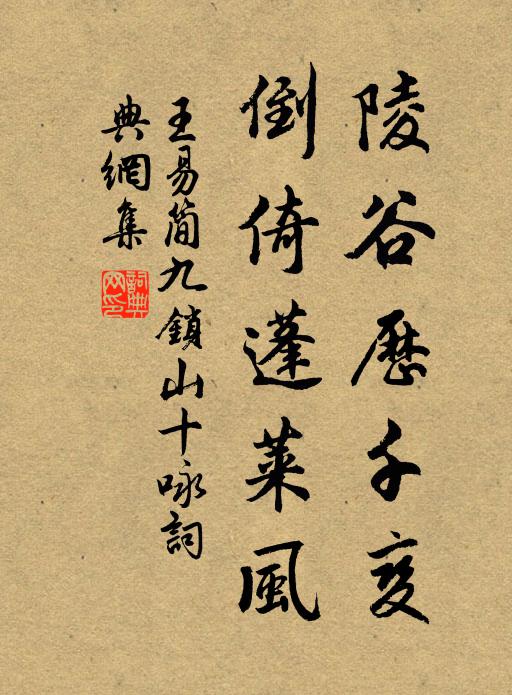 陵谷歷千变
倒倚蓬萊風
王易簡九鎖山十咏詞
典網集
詞典网印